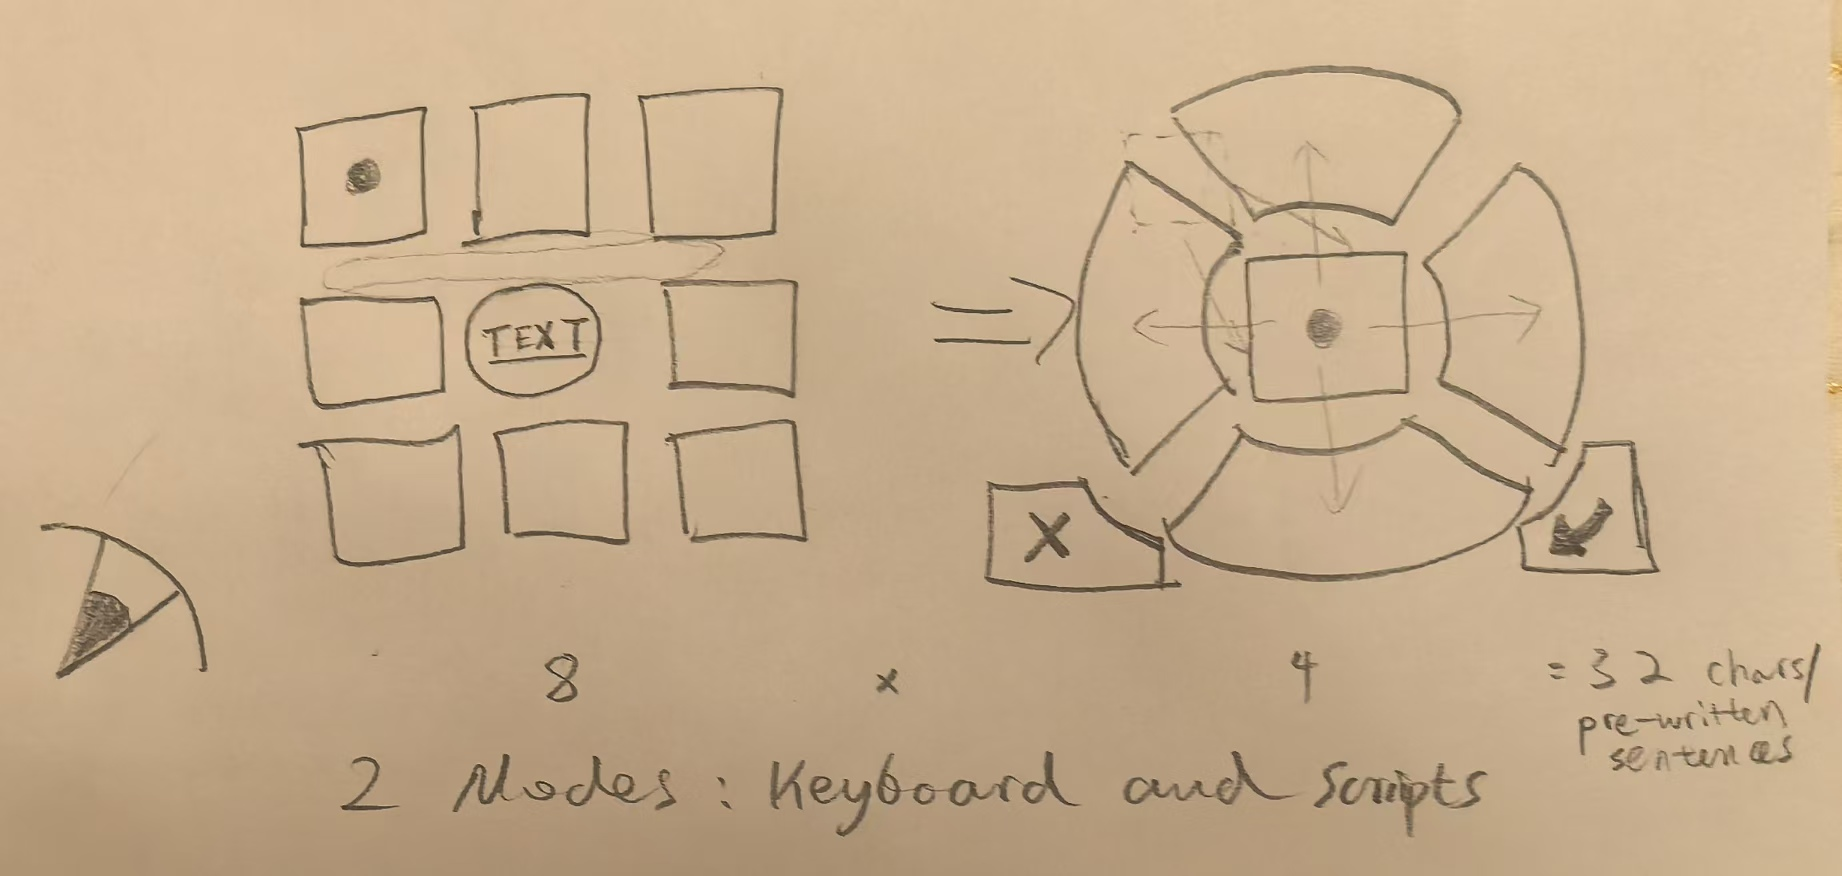 TEXT
X
8 x 4 = 32 chars/
pre-written
sentences
2 Modes: Keyboard and Scripts